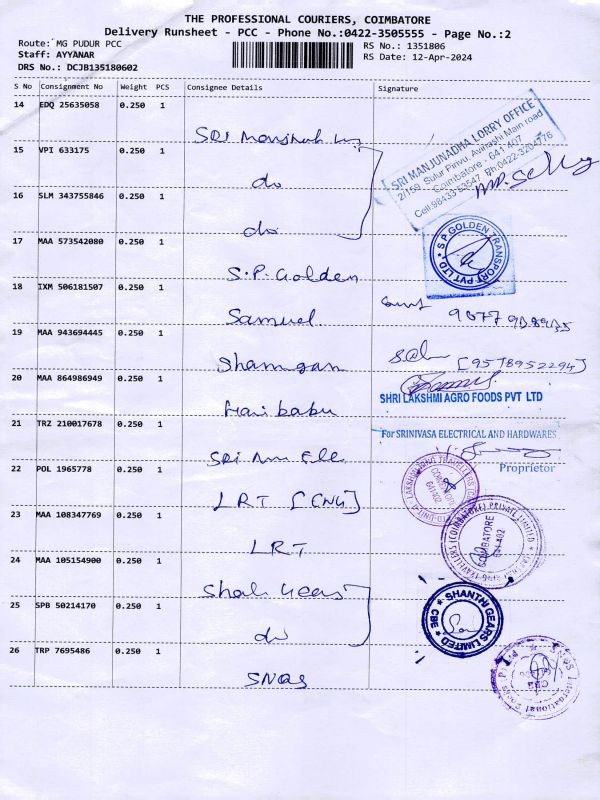 THE PROFESSIONAL COURIERS, COIMBATORE
Delivery Runsheet - PCC - Phone No.:0422-3505555 - Page No.:2
Route: MG PUDUR PCC RS No.: 1351806
Staff: AYYANAR RS Date: 12-Apr-2024
DRS No.: DCJB135180602
S No Consignment No Weight PCS Consignee Details Signature
14 EDQ 25635058 0.250 1
SRI
15 VPI 633175 0.250 1
do
16 SLM 343755846 0.250 1
do
SRI MANJUNADHA LORRY OFFICE
2/159, Sulur Pirivu, Avinashi Main road
Coimbatore - 641 407
Cell:98433 53547, Ph:0422-3204776
17 MAA 573542080 0.250 1
S.P. Golden
S.P.GOLDEN TRANSPORT PVT LTD
18 IXM 506181507 0.250 1
Samuel
19 MAA 943694445 0.250 1
Shanmgam
[9578952294]
20 MAA 864986949 0.250 1
Hari babu
SHRI LAKSHMI AGRO FOODS PVT LTD
21 TRZ 210017678 0.250 1
SRI Ele
For SRINIVASA ELECTRICAL AND HARDWARES
Proprietor
22 POL 1965778 0.250 1
LRT [CNG]
23 MAA 108347769 0.250 1
LRT
COIMBATORE
641 402
24 MAA 105154900 0.250 1
Shati Gears
25 SPB 50214170 0.250 1
do
SHANTHI GEARS LIMITED
CBE
26 TRP 7695486 0.250 1
SNQS